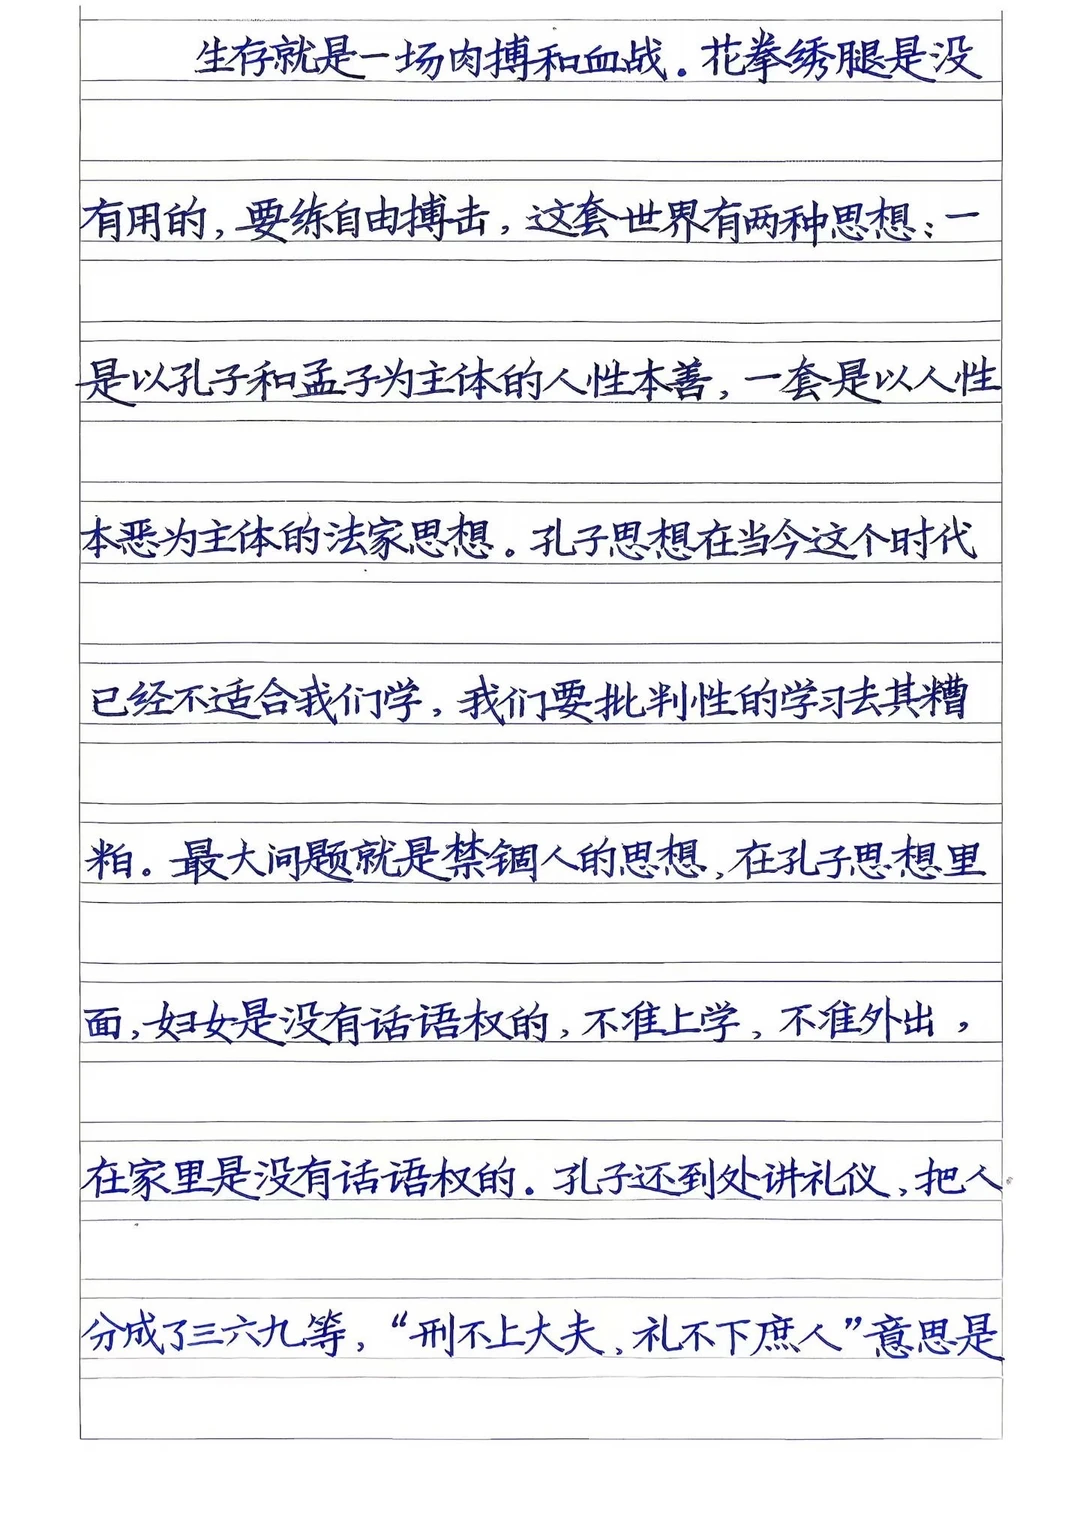 生存就是一场肉搏和血战。花拳绣腿是没
有用的,要练自由搏击,这套世界有两种思想:一
是以孔子和孟子为主体的人性本善,一套是以人性
本恶为主体的法家思想。孔子思想在当今这个时代
已经不适合我们学,我们要批判性的学习去其糟
粕。最大问题就是禁锢人的思想,在孔子思想里
面,妇女是没有话语权的,不准上学,不准外出,
在家里是没有话语权的。孔子还到处讲礼仪,把人
分成了三六九等,“刑不上大夫、礼不下庶人”意思是